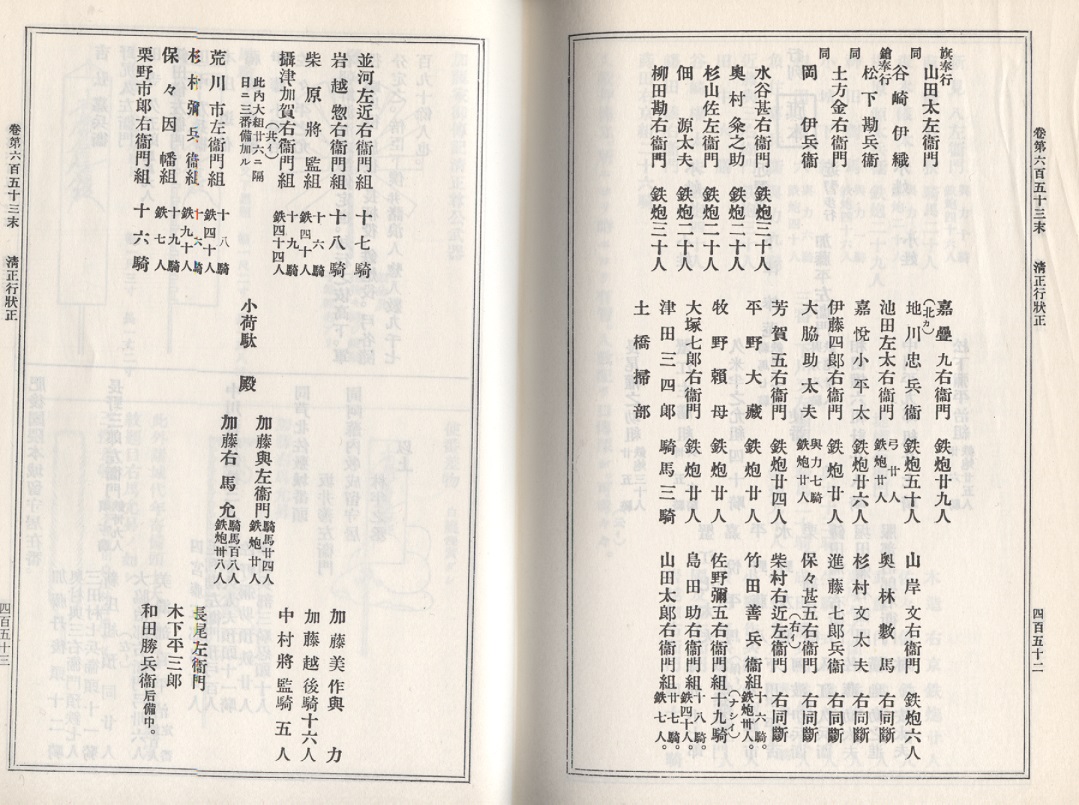 卷第六百五十三末　清正行狀正
四百五十二
旗奉行　山田太左衞門
同　谷崎伊織
鎗奉行　松下勘兵衞
同　土方金右衞門
同　岡伊兵衞
水谷甚右衞門　鉄炮三十人
奧村粂之助　鉄炮二十人
杉山佐左衞門　鉄炮二十人
佃源太夫　鉄炮二十人
柳田勘右衞門　鉄炮三十人
嘉壘九右衞門　鉄炮廿九人
地(北カ)川忠兵衞　鉄炮五十人
池田左太右衞門　弓廿人　鉄炮廿人
嘉悅小平太　鉄炮廿六人
伊藤四郎右衞門　鉄炮廿人
大脇助太夫　與力七騎　鉄炮廿人
芳賀五右衞門　鉄炮廿四人
平野大藏　鉄炮廿人
牧野賴母　鉄炮廿人
大塚七郎右衞門　鉄炮廿人
津田三四郎　騎馬三騎
土橋掃部
山岸文右衞門　鉄炮六人
奧林數馬　右同斷
杉村文太夫　右同斷
進藤七郎兵衞　右同斷
保々甚五右衞門　右同斷
柴村右近左(右イ)衞門　右同斷
竹田善兵衞組　十六騎　鉄炮卅人。
佐野彌五右衞門組(ナシイ)十九騎
島田助右衞門組　十八騎　鉄四十人。
山田太郎右衞門組　廿七騎　鉄七人。
並河左近右衞門組　十七騎
岩越惣右衞門組　十八騎
柴原將監組　十六騎　鉄四十人
攝津加賀(共イ)右衞門組　十九騎　鉄四十四人
此内大組廿六ニ隔
日ニ三番備加ル
荒川市左衞門組　十八騎　鉄四十人
杉村彌兵衞組　十六騎　鉄九十人
保々因幡組　十九騎　鉄七人
栗野市郎右衞門組　十六騎
小荷駄　殿
加藤與左衞門　騎馬廿四人　鉄炮廿人
加藤右馬允　騎馬百八人　鉄炮卅八人
加藤美作與力
加藤越後騎十六人
中村將監騎五人
長尾左衞門
木下平三郎
和田勝兵衞后備中。
卷第六百五十三末　清正行狀正
四百五十三